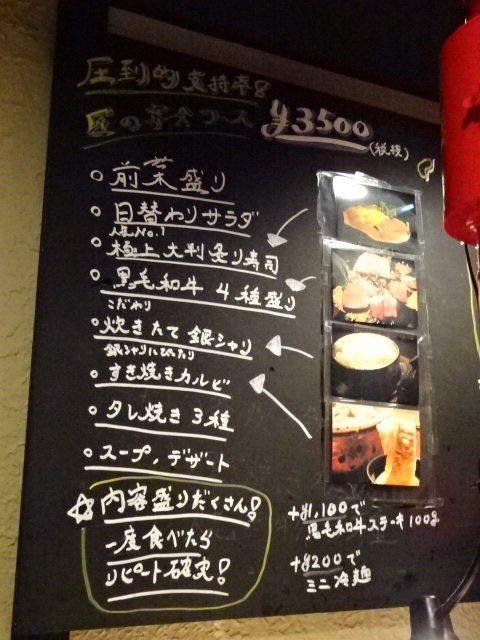 圧到的支持率!
匠の宴会コース ¥3500
(税抜)
○ 前菜盛り
○ 日替わりサラダ
人気No.1
○ 極上大判炙り寿司
○ 黒毛和牛 4種盛り
こだわり
○ 炊きたて 銀シャリ
銀シャリにぴったり
○ すき焼きカルビ
○ タレ焼き 3種
○ スープ、デザート
☆ 内容盛りだくさん!
一度食べたら
リピート確実!
+¥1,100で
黒毛和牛ステーキ100g
+¥200で
ミニ冷麺